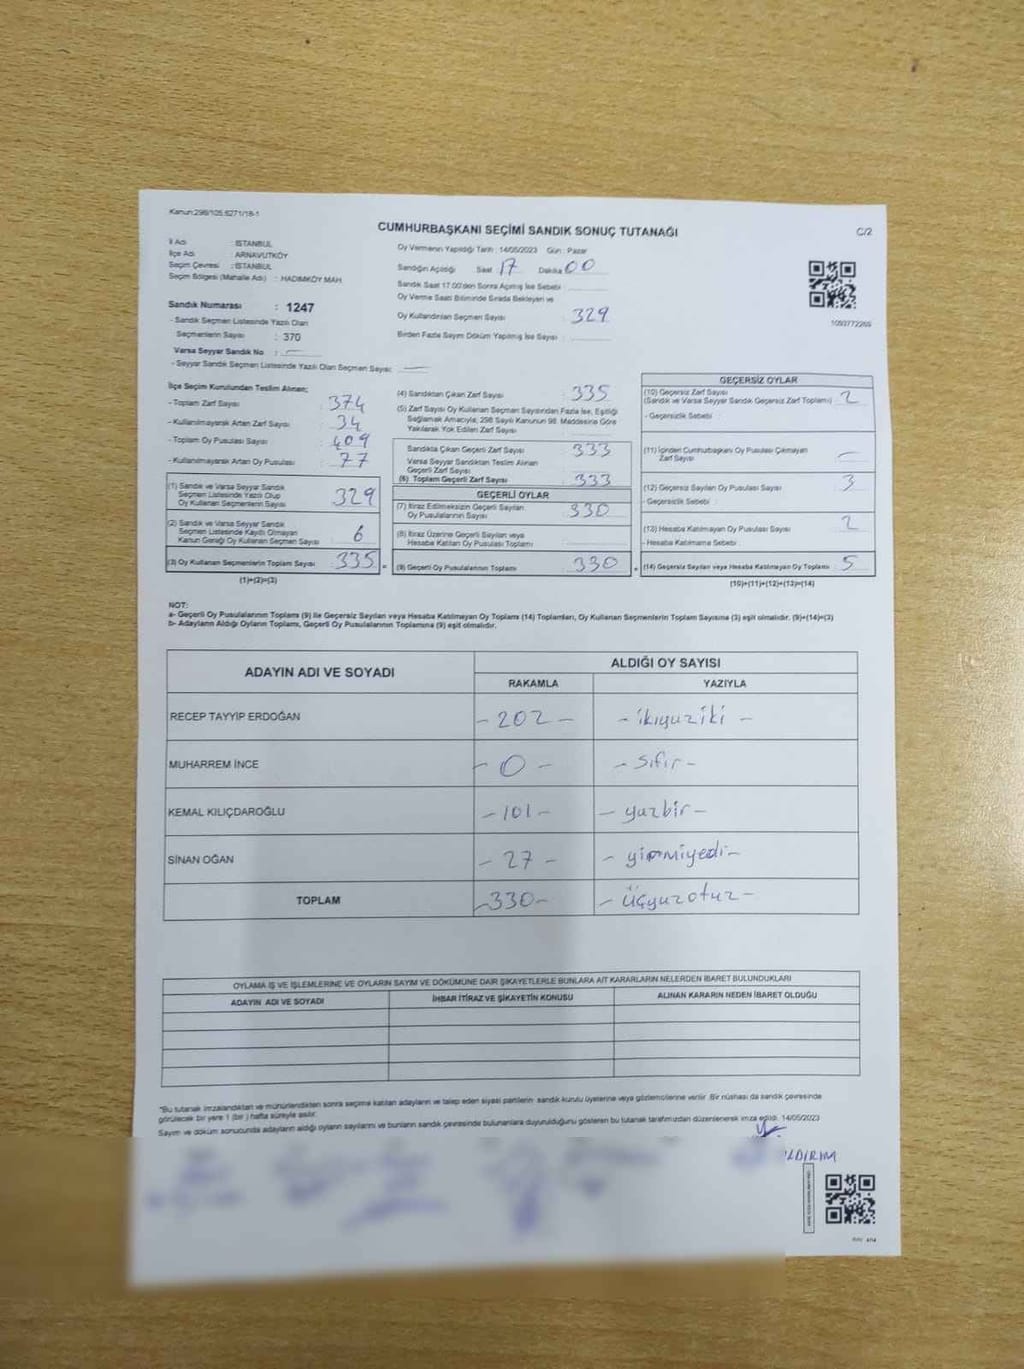 Kanun:298/105.6271/18-1
CUMHURBAŞKANI SEÇİMİ SANDIK SONUÇ TUTANAĞI
C/2
İl Adı : İSTANBUL
İlçe Adı : ARNAVUTKÖY
Seçim Çevresi : İSTANBUL
Seçim Bölgesi (Mahalle Adı) : HADIMKÖY MAH
Sandık Numarası : 1247
- Sandık Seçmen Listesinde Yazılı Olan
Seçmenlerin Sayısı : 370
Varsa Seyyar Sandık No :
- Seyyar Sandık Seçmen Listesinde Yazılı Olan Seçmen Sayısı:
Oy Vermenin Yapıldığı Tarih : 14/05/2023 Gün : Pazar
Sandığın Açıldığı Saat 17 Dakika 00
Sandık Saat 17.00'den Sonra Açılmış İse Sebebi :
Oy Verme Saati Bitiminde Sırada Bekleyen ve
Oy Kullandırılan Seçmen Sayısı : 329
Birden Fazla Sayım Döküm Yapılmış İse Sayısı :
1093772269
İlçe Seçim Kurulundan Teslim Alınan;
- Toplam Zarf Sayısı : 374
- Kullanılmayarak Artan Zarf Sayısı : 34
- Toplam Oy Pusulası Sayısı : 409
- Kullanılmayarak Artan Oy Pusulası : 77
(1) Sandık ve Varsa Seyyar Sandık
Seçmen Listesinde Yazılı Olup
Oy Kullanan Seçmenlerin Sayısı : 329
(2) Sandık ve Varsa Seyyar Sandık
Seçmen Listesinde Kayıtlı Olmayan
Kanun Gereği Oy Kullanan Seçmen Sayısı : 6
(3) Oy Kullanan Seçmenlerin Toplam Sayısı : 335
(1)+(2)=(3)
(4) Sandıktan Çıkan Zarf Sayısı : 335
(5) Zarf Sayısı Oy Kullanan Seçmen Sayısından Fazla İse, Eşitliği
Sağlamak Amacıyla; 298 Sayılı Kanunun 98. Maddesine Göre
Yakılarak Yok Edilen Zarf Sayısı :
Sandıkta Çıkan Geçerli Zarf Sayısı : 333
Varsa Seyyar Sandıktan Teslim Alınan
Geçerli Zarf Sayısı :
(6) Toplam Geçerli Zarf Sayısı : 333
GEÇERLİ OYLAR
(7) İtiraz Edilmeksizin Geçerli Sayılan
Oy Pusulalarının Sayısı : 330
(8) İtiraz Üzerine Geçerli Sayılan veya
Hesaba Katılan Oy Pusulası Toplamı :
(9) Geçerli Oy Pusulalarının Toplamı : 330
GEÇERSİZ OYLAR
(10) Geçersiz Zarf Sayısı
(Sandık ve Varsa Seyyar Sandık Geçersiz Zarf Toplamı) : 2
- Geçersizlik Sebebi :
(11) İçinden Cumhurbaşkanı Oy Pusulası Çıkmayan
Zarf Sayısı :
(12) Geçersiz Sayılan Oy Pusulası Sayısı : 3
- Geçersizlik Sebebi :
(13) Hesaba Katılmayan Oy Pusulası Sayısı : 2
- Hesaba Katılmama Sebebi :
(14) Geçersiz Sayılan veya Hesaba Katılmayan Oy Toplamı : 5
(10)+(11)+(12)+(13)=(14)
NOT:
a- Geçerli Oy Pusulalarının Toplamı (9) ile Geçersiz Sayılan veya Hesaba Katılmayan Oy Toplamı (14) Toplamları, Oy Kullanan Seçmenlerin Toplam Sayısına (3) eşit olmalıdır. (9)+(14)=(3)
b- Adayların Aldığı Oyların Toplamı, Geçerli Oy Pusulalarının Toplamına (9) eşit olmalıdır.
ADAYIN ADI VE SOYADI
ALDIĞI OY SAYISI
RAKAMLA YAZIYLA
RECEP TAYYİP ERDOĞAN - 202 - - ikiyüziki -
MUHARREM İNCE - 0 - - sıfır -
KEMAL KILIÇDAROĞLU - 101 - - yüzbir -
SİNAN OĞAN - 27 - - yirmiyedi -
TOPLAM - 330 - - Üçyüzotuz -
OYLAMA İŞ VE İŞLEMLERİNE VE OYLARIN SAYIM VE DÖKÜMÜNE DAİR ŞİKAYETLERLE BUNLARA AİT KARARLARIN NELERDEN İBARET BULUNDUKLARI
ADAYIN ADI VE SOYADI İHBAR İTİRAZ VE ŞİKAYETİN KONUSU ALINAN KARARIN NEDEN İBARET OLDUĞU
*Bu tutanak imzalandıktan ve mühürlendikten sonra seçime katılan adayların ve talep eden siyasi partilerin sandık kurulu üyelerine veya gözlemcilerine verilir. Bir nüshası da sandık çevresinde
görülecek bir yere 1 (bir) hafta süreyle asılır.
Sayım ve döküm sonucunda adayların aldığı oyların sayılarını ve bunların sandık çevresinde bulunanlara duyurulduğunu gösteren bu tutanak tarafımızdan düzenlenerek imza edildi. 14/05/2023
ILDIRIM